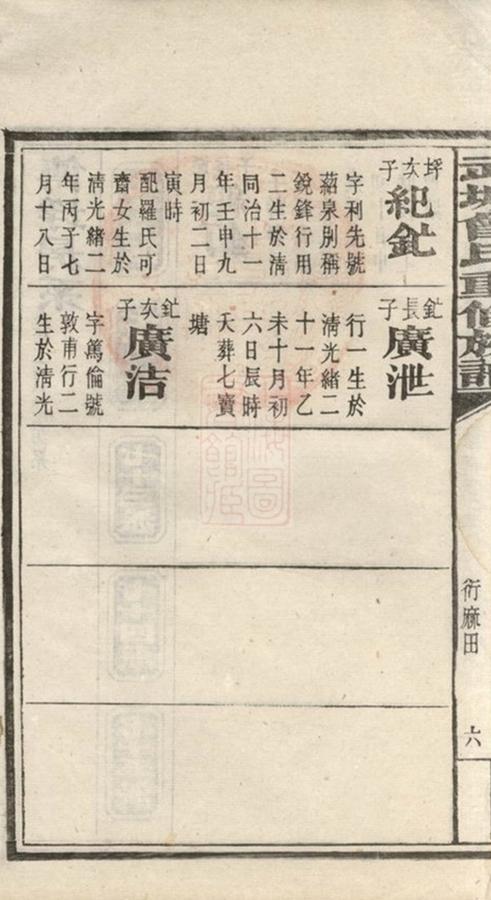 武城曾氏重修族譜
衍麻田
六
坪次子
紀釓
字利先號
泉別稱
銳鋒行用
二生於淸
同治十一
年壬申九
月初二日
寅時
配羅氏可
齋女生於
淸光緒二
年丙子七
月十八日
釓長子
廣泄
行一生於
淸光緒二
十一年乙
未十月初
六日辰時
夭葬七寶
塘
釓次子
廣洁
字篤倫號
敦甫行二
生於淸光